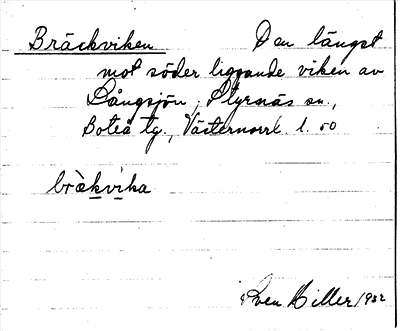 Bräckviken Den längst
mot söder liggande viken av
Långsjön, Styrnäs sn.,
Boteå tg., Västernorrl. l. 50
brækvika
Sven Hiller 1932